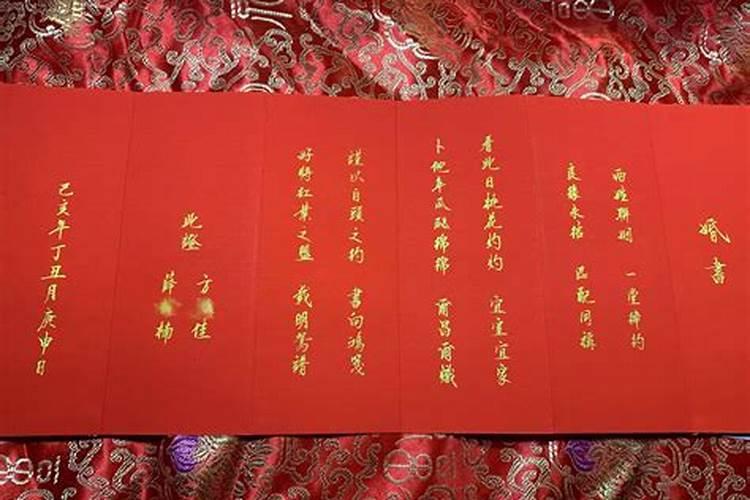 婚書
兩姓聯姻 一堂締約
良緣永結 匹配同稱
看此日桃花灼灼 宜室宜家
卜他年瓜瓞綿綿 爾昌爾熾
謹以白頭之約 書向鴻箋
好將紅葉之盟 載明鴛譜
此證
方 佳
薛 楠
己亥年丁丑月庚申日